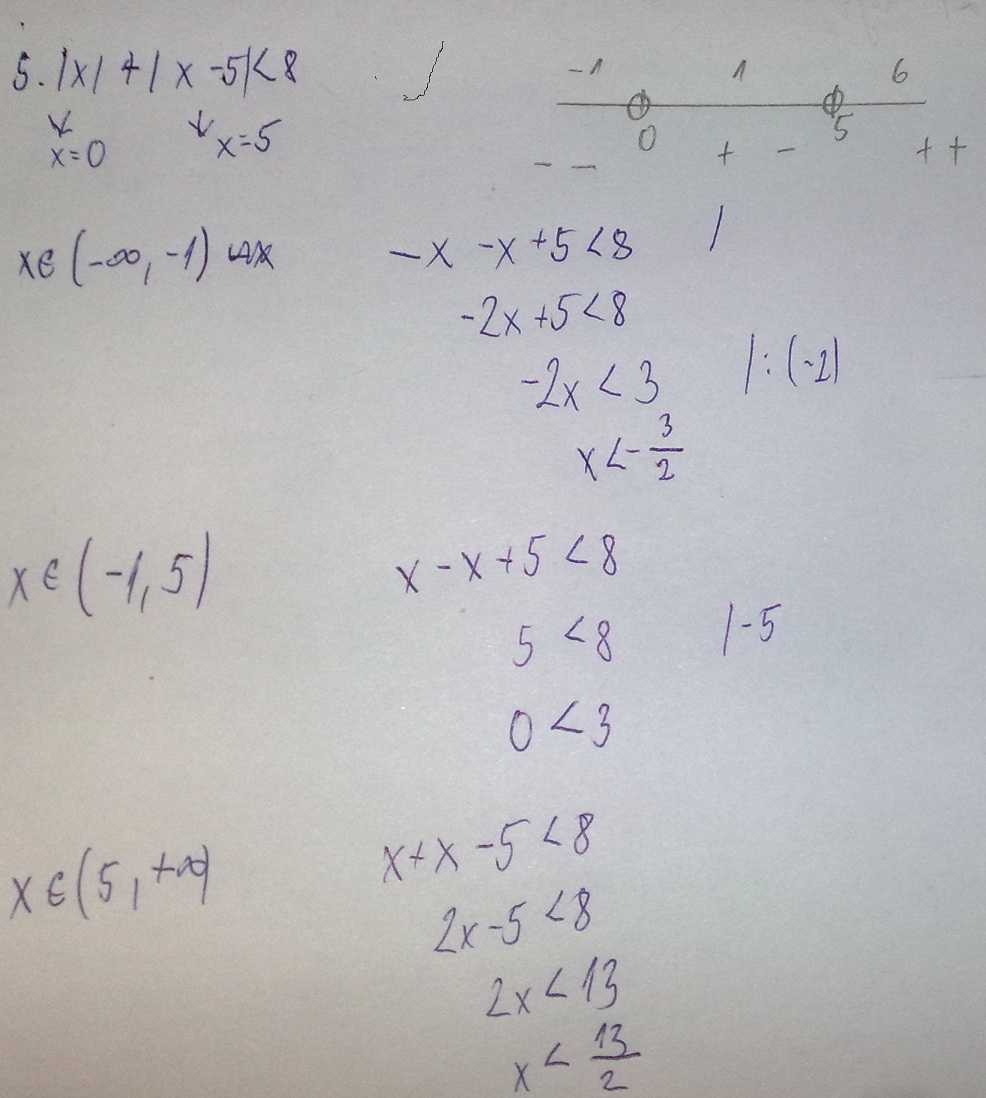 5. |x| + |x -5|< 8
-1 1 6
x=0 x=5
0 5
- - + - + +
x∈ (-∞, -1)
-x -x +5 < 8 |
-2x +5 < 8
-2x < 3 |: (-2)
x < - 3/2
x ∈ (-1, 5)
x - x + 5 < 8
5 < 8 | -5
0 < 3
x ∈ (5, +∞)
x + x - 5 < 8
2x - 5 < 8
2x < 13
x < 13/2